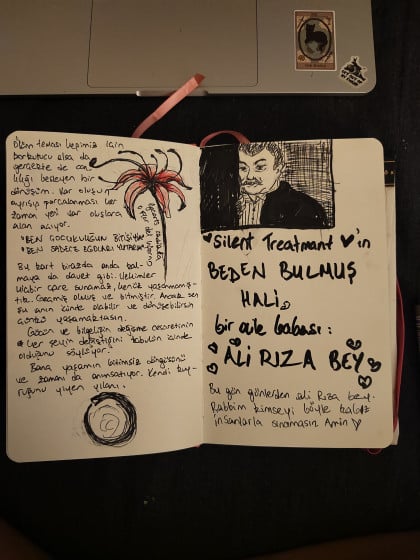 Ölüm teması hepimiz için
korkutucu olsa da
gerçekte de can
lılığı besleyen bir
dönüşüm. Var oluşun
ayrışıp parçalanması her
zaman yeni var oluşlara
alan açıyor.
"BEN ÇOCUKLUĞUN BİTİŞİYİM
"BEN SADECE
Bu kart biraz da anda kal-
maya da davet gibi. Ölümler
çare sunamaz, henüz yaşanmamış-
tır. Geçmiş ölmüş ve bitmiştir. Ancak sen
şu anın içinde olabilir ve dönüşebilirsin
yaşamaktasın.
Gücün ve bilgeliğin değişme cesaretinin
her şeyin değiştiğini kabulün içinde
olduğunu söylüyor.
Bana yaşamın bitimsiz döngüsünü
ve zamanı da anımsatıyor. Kendi kuy-
ruğunu yiyen yılanı.
Silent Treatment'in
BEDEN BULMUŞ
HALİ
bir aile babası:
ALİ RIZA BEY
Bu gün günlerden Ali Rıza bey.
Rabbim kimseyi böyle kalpsiz
insanlarla sınamasın Amin